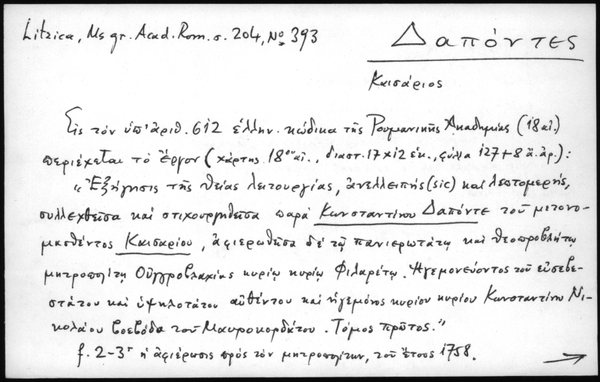 Litzica, Ms gr. Acad. Rom. σ. 204, Νο 393
Δαπόντες
Καισάριος
Εἰς τὸν ὑπ' ἀριθ. 612 ἑλλην. κώδικα τῆς Ρουμανικῆς Ἀκαδημίας (18 αἰ.)
περιέχεται τὸ ἔργον (χάρτης 18ου αἰ., διαστ. 17x12 ἑκ., φύλλα 127+8 ἄ. ἀρ.):
"Ἐξήγησις τῆς θείας λειτουργίας, ἀνελλειπής (sic) καὶ λεπτομερής,
συλλεχθεῖσα καὶ στιχουργηθεῖσα παρὰ Κωνσταντίνου Δαπόντε τοῦ μετονο-
μασθέντος Καισαρίου, ἀφιερωθεῖσα δὲ τῷ πανιερωτάτῳ καὶ θεοπροβλήτῳ
μητροπολίτῃ Οὑγγροβλαχίας κυρίῳ κυρίῳ Φιλαρέτῳ. Ἡγεμονεύοντος τοῦ εὐσεβε-
στάτου καὶ ὑψηλοτάτου αὐθέντου καὶ ἡγεμόνος κυρίου κυρίου Κωνσταντίνου Νι-
κολάου βοεβόδα τοῦ Μαυροκορδάτου. Τόμος πρῶτος."
f. 2-3r ἡ ἀφιέρωσις πρὸς τὸν μητροπολίτην, τοῦ ἔτους 1758.